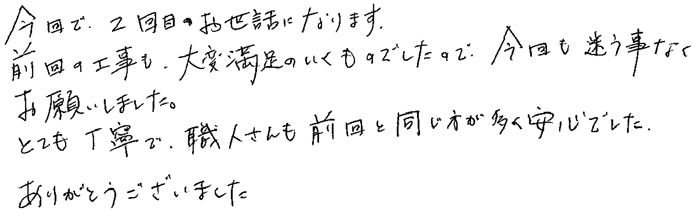 今回で、2回目のお世話になります。
前回の工事も、大変満足のいくものでしたので、今回も迷う事なく
お願いしました。
とても丁寧で、職人さんも前回と同じ方が多く安心でした。
ありがとうございました